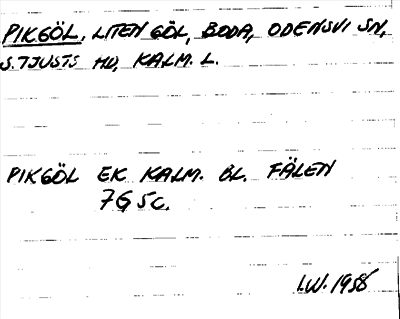 PIKGÖL, LITEN GÖL, BODA, ODENSVI SN,
S. TJUSTS HD, KALM. L.
PIKGÖL EK KALM. BL. FÄLEN
7G 5c.
I.W. 1956